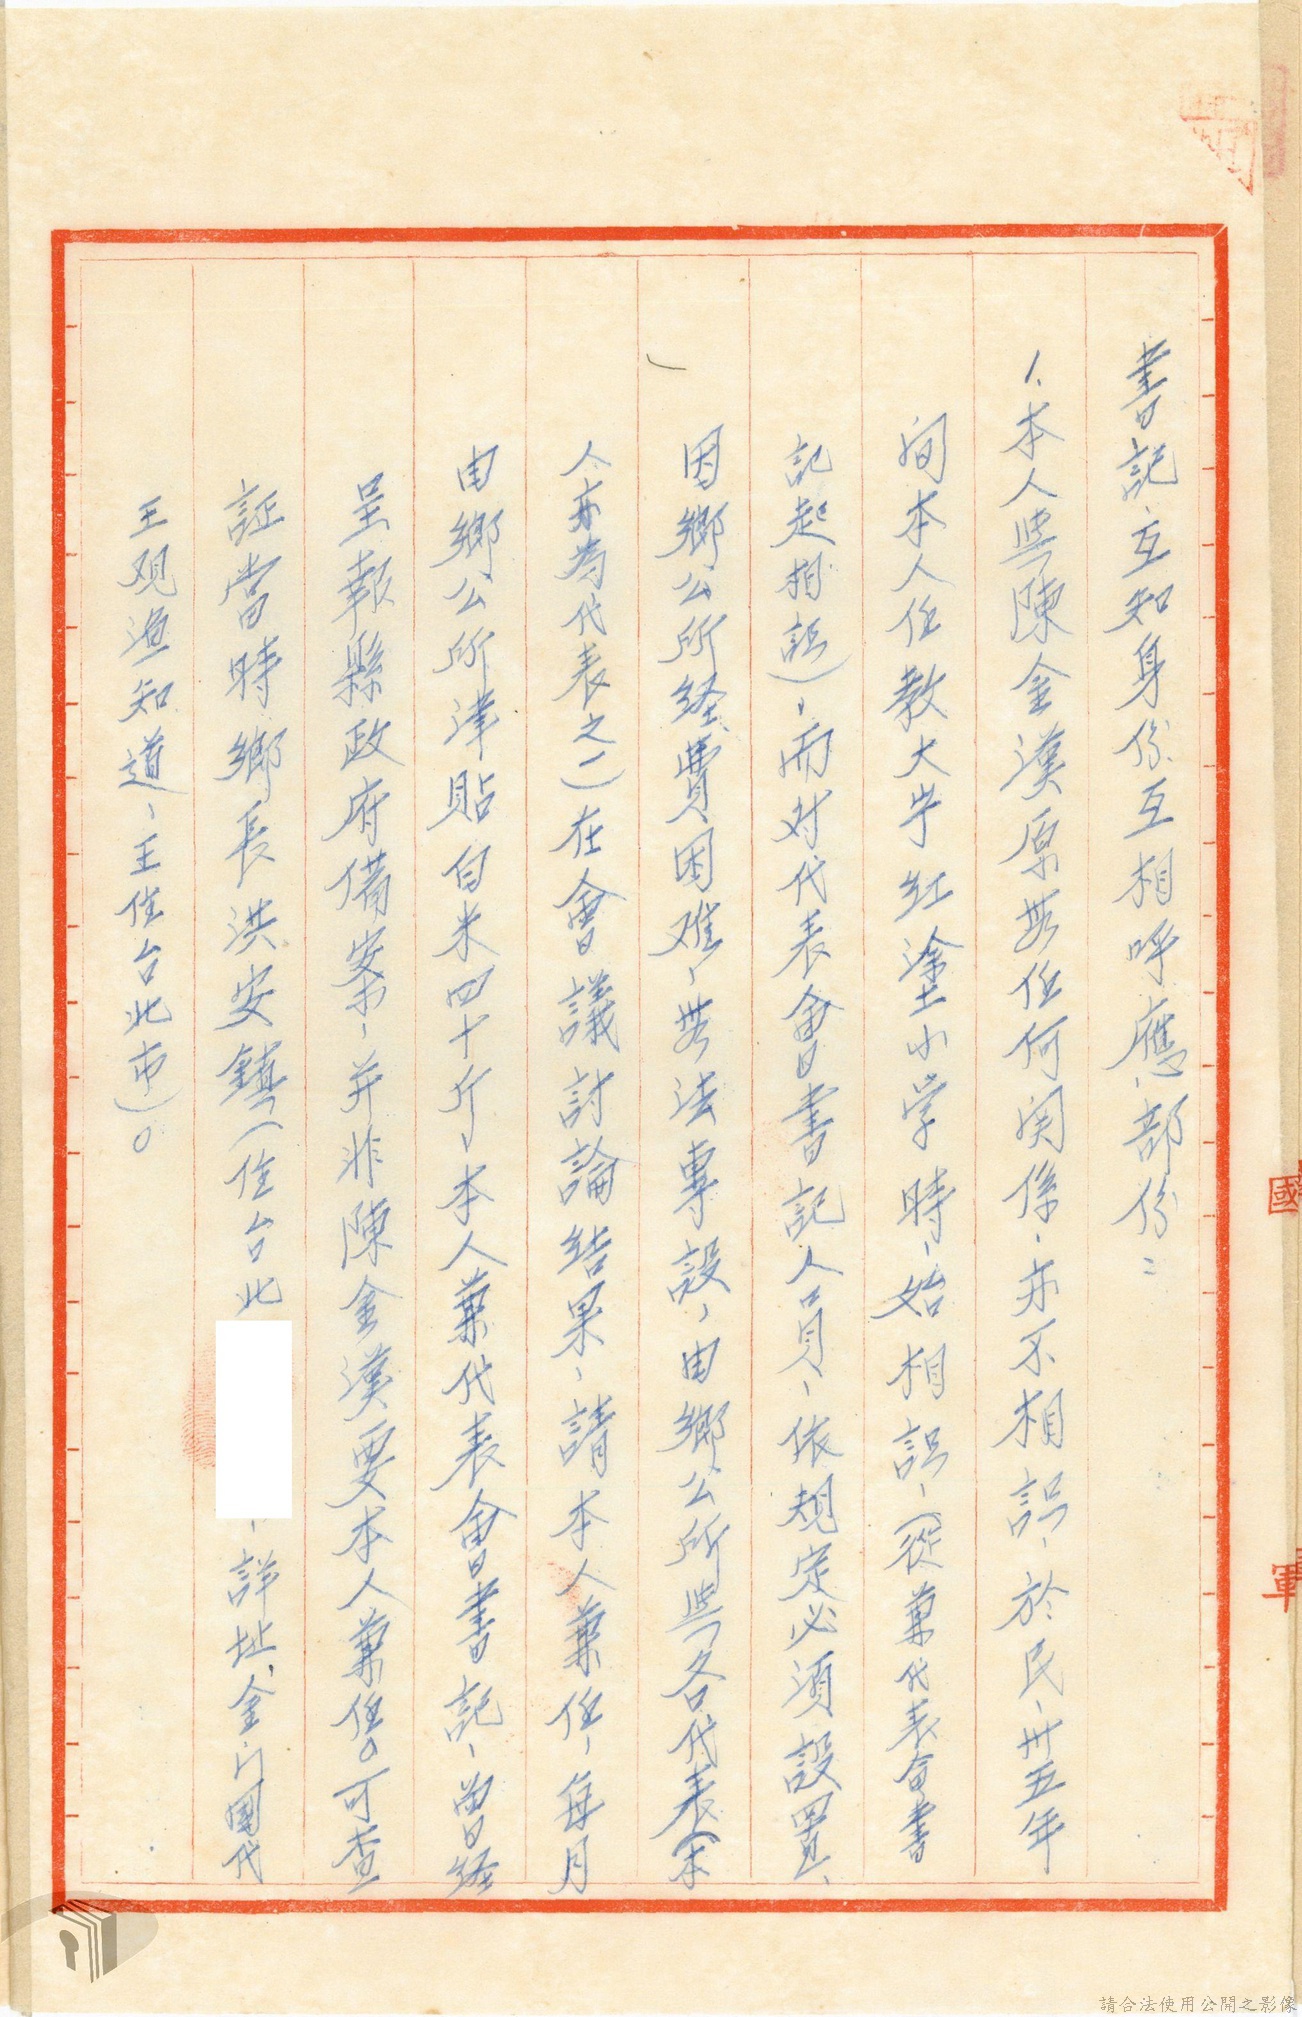 書記、互知身份互相呼應、部份：
1、本人與陳金漢原無任何関係、亦不相認、於民、卅五年
间本人任教大中紅塗小学時、始相認、(從兼代表會書
記起相認)、而对代表會書記人員、依規定必須設置、
因鄉公所経費困难、無法專設、由鄉公所與各代表(本
人亦為代表之一)在會議討論結果、請本人兼任、每月
由鄉公所津貼白米四十斤、本人兼代表會書記、曾経
呈報縣政府備案、并非陳金漢要本人兼任。可查
証當時鄉長洪安鎮(住台北、詳址金门國代
王观漁知道、王住台北市)。
國
軍
請合法使用公開之影像